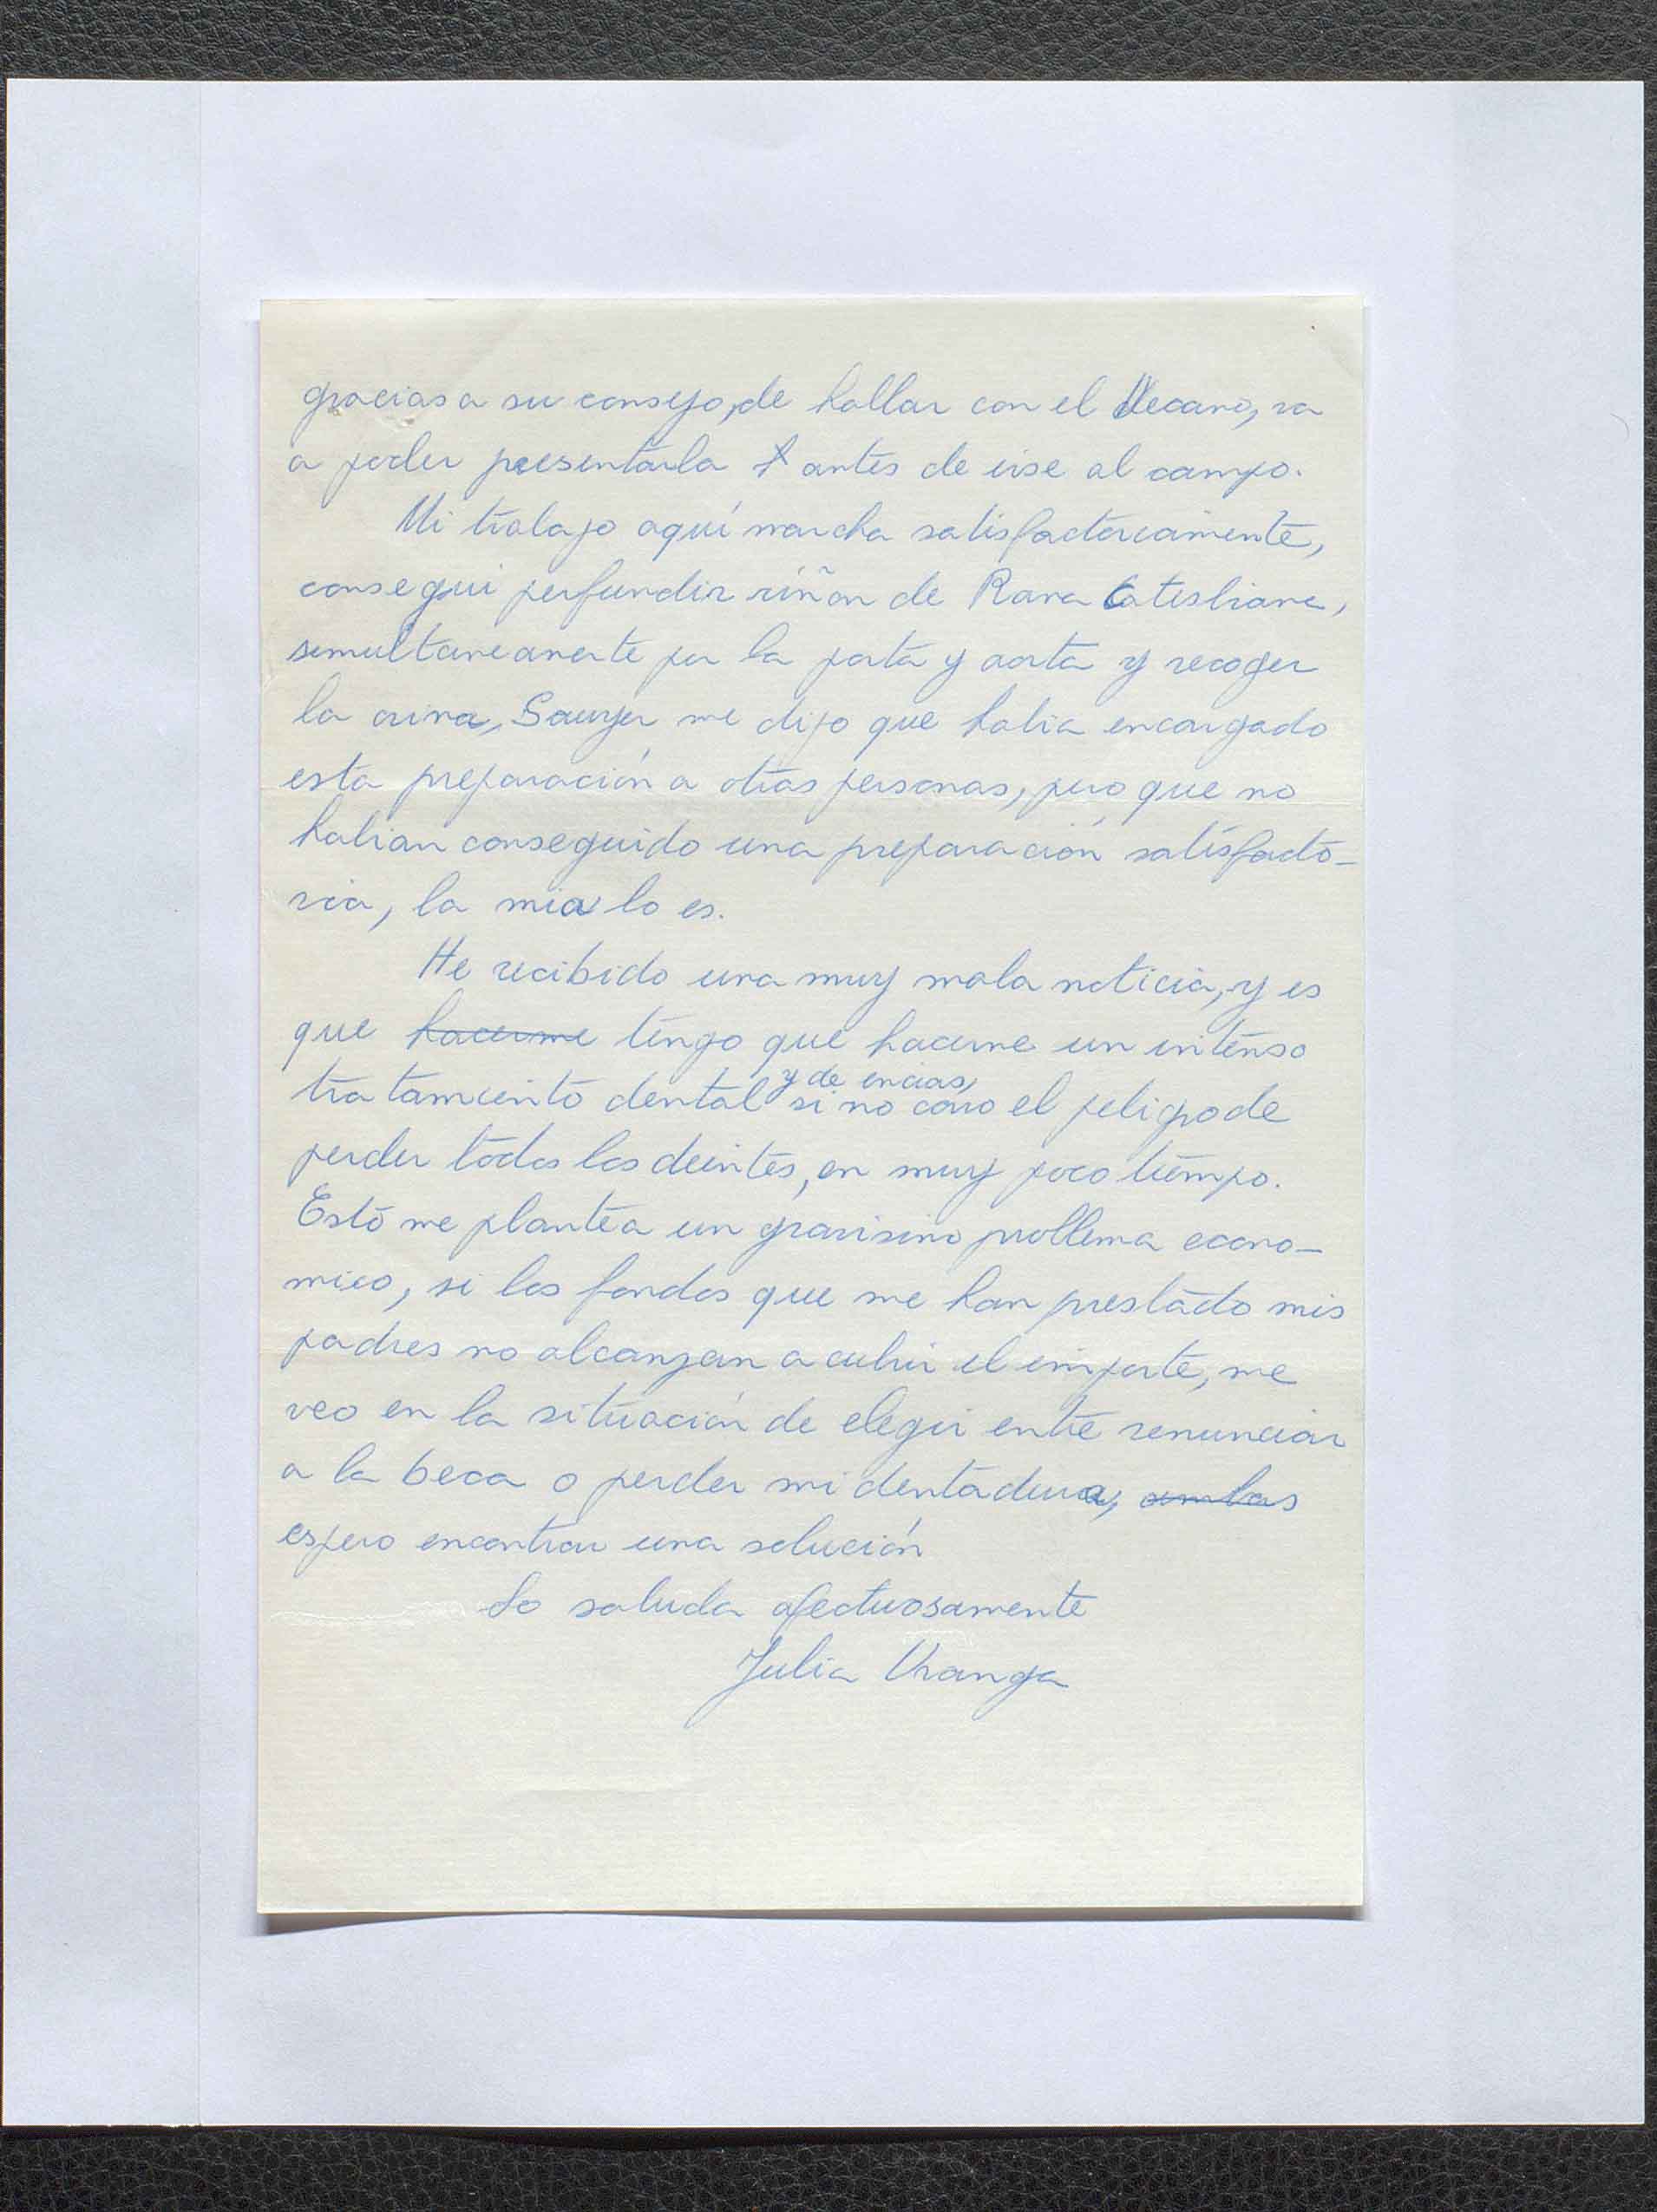 gracias a su consejo, de hablar con el Decano, va
a poder presentarla antes de irse al campo.
Mi trabajo aquí marcha satisfactoriamente,
consegui perfundir riñon de Rana Catesbiana,
simultaneamente por la porta y aorta y recoger
la orina, Sawyer me dijo que habia encargado
esta preparación a otras personas, pero que no
habian conseguido una preparación satisfacto-
ria, la mia lo es.
He recibido una muy mala noticia, y es
que hacerme tengo que hacerme un intenso
tratamiento dental y de encias, si no corro el peligro de
perder todos los dientes, en muy poco tiempo.
Esto me plantea un gravisimo problema econo-
mico, si los fondos que me han prestado mis
padres no alcanzan a cubrir el importe, me
veo en la situación de elegir entre renunciar
a la beca o perder mi dentadura, ambas
espero encontrar una solución
Lo saluda afectuosamente
Julia Uranga